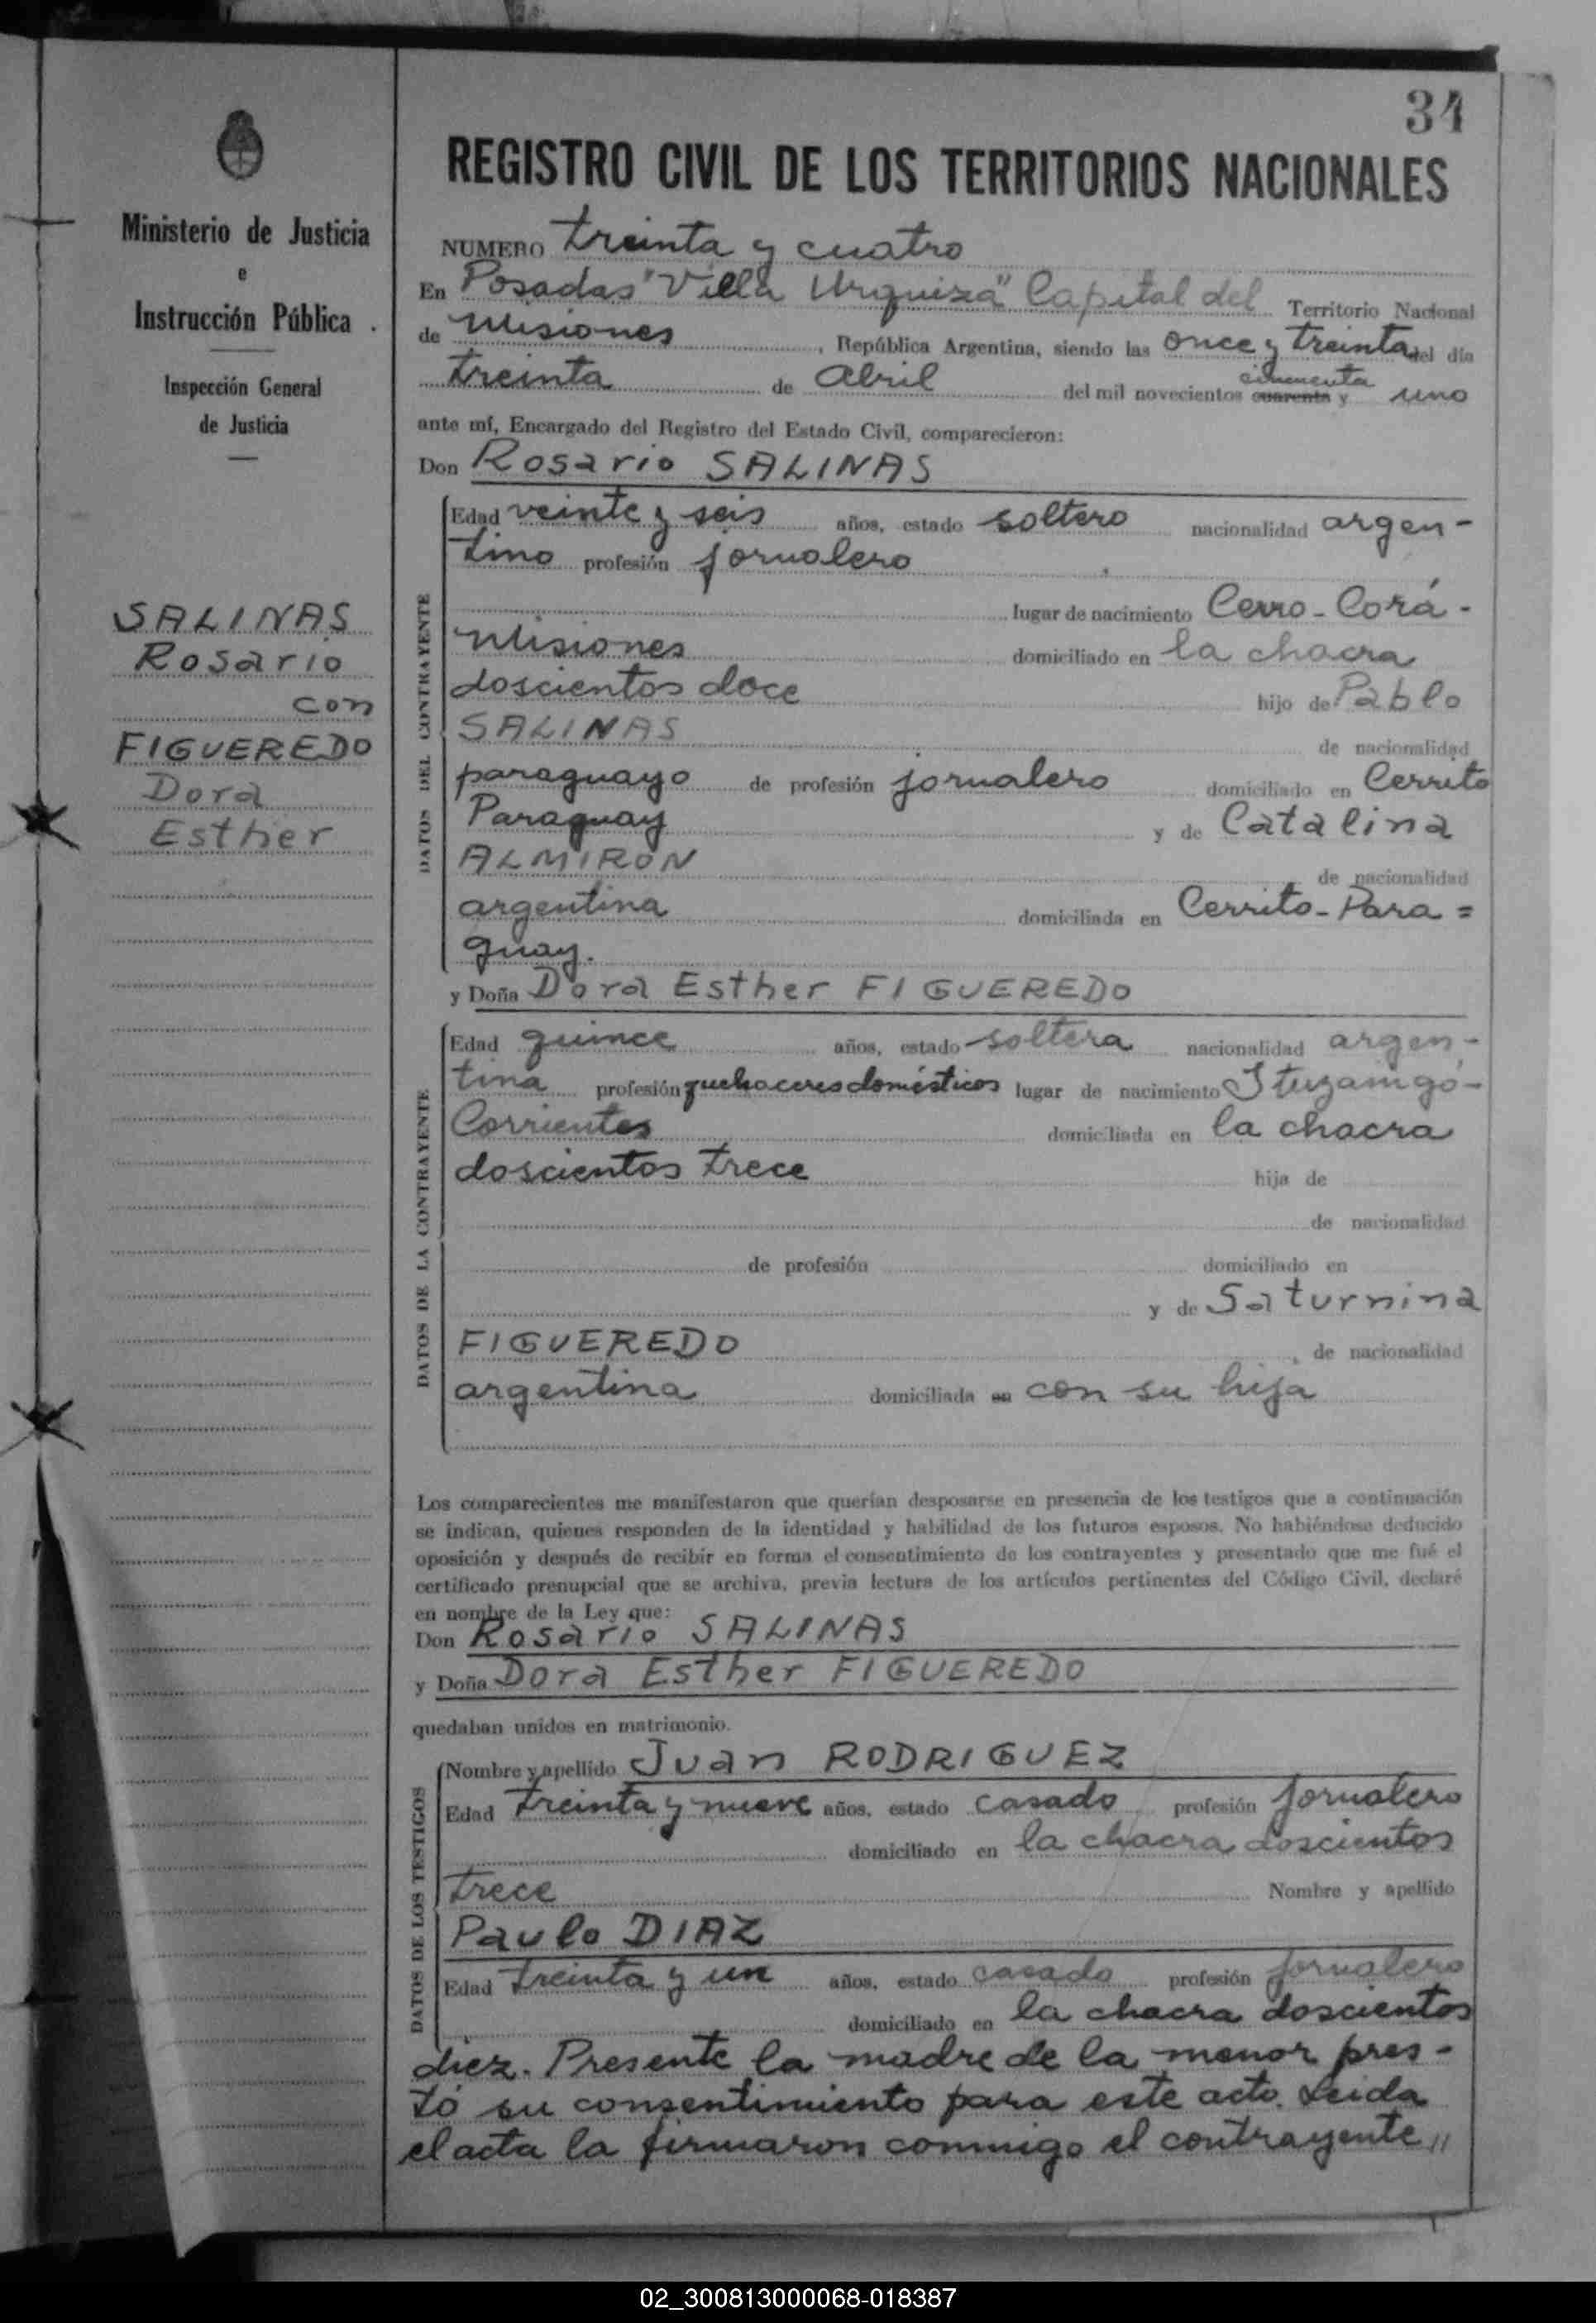 34
Ministerio de Justicia
e
Instrucción Pública
Inspección General
de Justicia
SALINAS
Rosario
con
FIGUEREDO
Dora
Esther
REGISTRO CIVIL DE LOS TERRITORIOS NACIONALES
NUMERO treinta y cuatro
En Posadas "Villa Urquiza" Capital del Territorio Nacional
de Misiones, República Argentina, siendo las once y treinta del día
treinta de Abril del mil novecientos cuarenta cincuenta y uno
ante mí, Encargado del Registro del Estado Civil, comparecieron:
Don Rosario SALINAS
DATOS DEL CONTRAYENTE
Edad veinte y seis años, estado soltero nacionalidad argen-
tino profesión jornalero
lugar de nacimiento Cerro-Corá-
Misiones domiciliado en la chacra
doscientos doce hijo de Pablo
SALINAS de nacionalidad
paraguayo de profesión jornalero domiciliado en Cerrito
Paraguay y de Catalina
ALMIRON de nacionalidad
argentina domiciliada en Cerrito-Para=
guay.
y Doña Dora Esther FIGUEREDO
DATOS DE LA CONTRAYENTE
Edad quince años, estado soltera nacionalidad argen-
tina profesión quehaceres domésticos lugar de nacimiento Ituzaingó-
Corrientes domiciliada en la chacra
doscientos trece hija de
de nacionalidad
de profesión domiciliado en
y de Saturnina
FIGUEREDO, de nacionalidad
argentina domiciliada en con su hija
Los comparecientes me manifestaron que querían desposarse en presencia de los testigos que a continuación
se indican, quienes responden de la identidad y habilidad de los futuros esposos. No habiéndose deducido
oposición y después de recibir en forma el consentimiento de los contrayentes y presentado que me fué el
certificado prenupcial que se archiva, previa lectura de los artículos pertinentes del Código Civil, declaré
en nombre de la Ley que:
Don Rosario SALINAS
y Doña Dora Esther FIGUEREDO
quedaban unidos en matrimonio.
DATOS DE LOS TESTIGOS
Nombre y apellido Juan RODRIGUEZ
Edad treinta y nueve años, estado casado profesión jornalero
domiciliado en la chacra doscientos
trece Nombre y apellido
Paulo DIAZ
Edad treinta y un años, estado casado profesión jornalero
domiciliado en la chacra doscientos
diez. Presente la madre de la menor pres-
tó su consentimiento para este acto. Leida
el acta la firmaron conmigo el contrayente,,
02_300813000068-018387